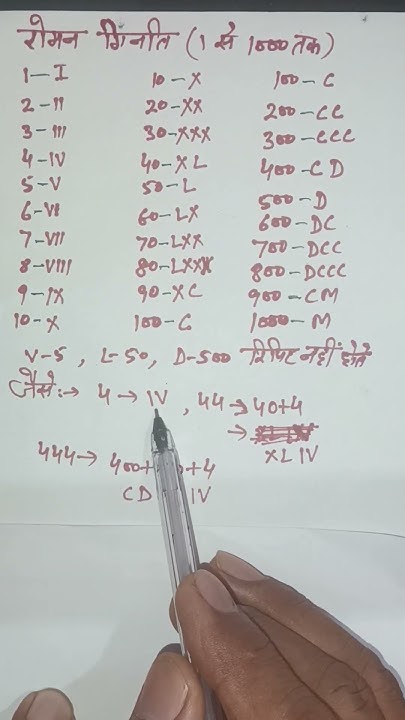 रोमन गिनीत (1 से 1000 तक)
1-I 10-X 100-C
2-II 20-XX 200-CC
3-III 30-XXX 300-CCC
4-IV 40-XL 400-CD
5-V 50-L 500-D
6-VI 60-LX 600-DC
7-VII 70-LXX 700-DCC
8-VIII 80-LXXX 800-DCCC
9-IX 90-XC 900-CM
10-X 100-C 1000-M
V-5, L-50, D-500 रिपिट नहीं होते
जैसे:→ 4→IV, 44→40+4
→ XL IV
444→ 400+ +4
CD IV